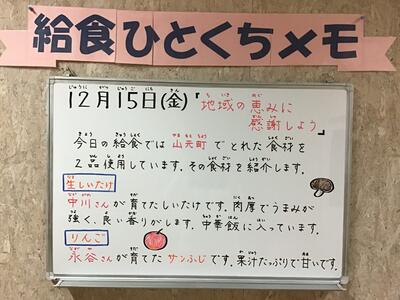 給食ひとくちメモ
12月15日(金)『地域の恵みに
感謝しよう』
今日の給食では山元町でとれた食材を
2品使用しています。その食材を紹介します。
生しいたけ
中川さんが育てたしいたけです。肉厚でうまみが
強く、良い香りがします。中華飯に入っています。
りんご
永谷さんが育てたサンふじです。果汁たっぷりで甘いです。